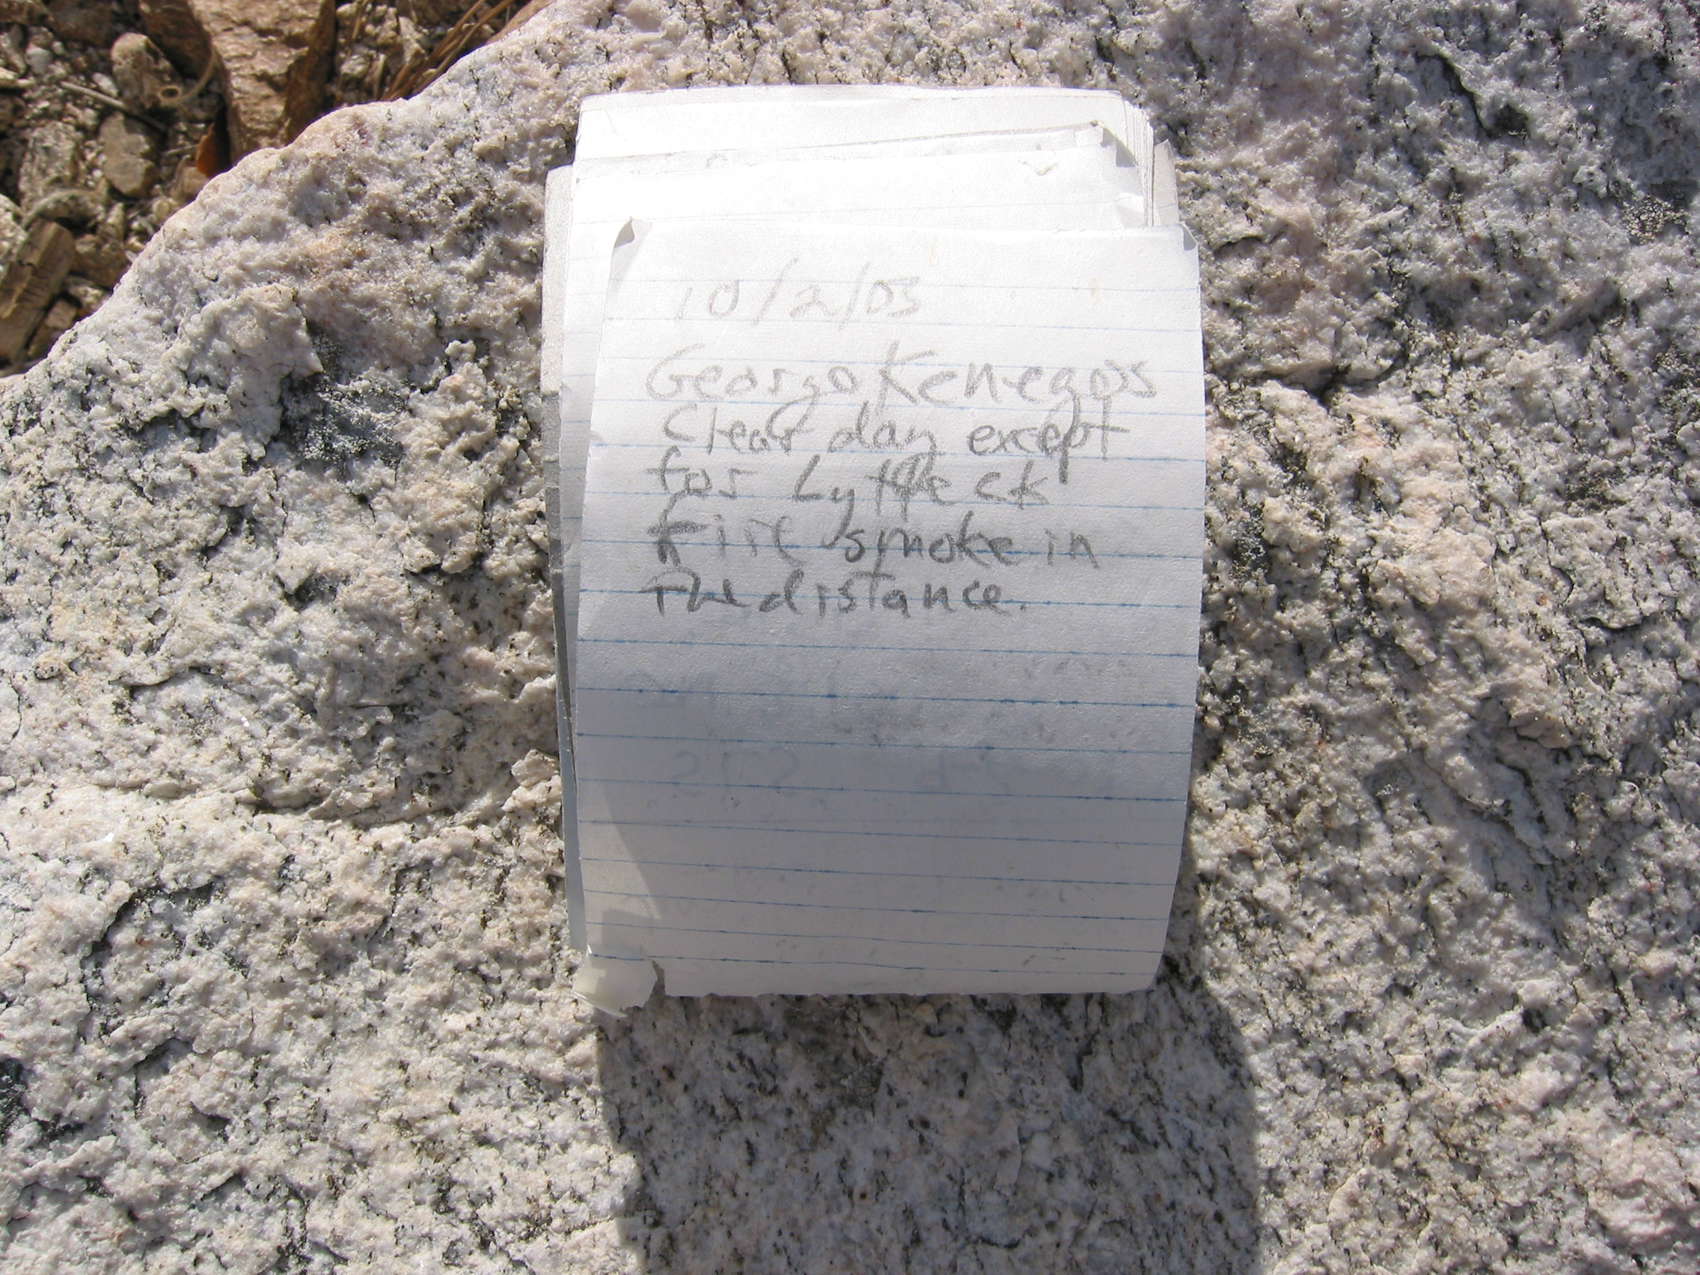 10/2/03
George Kenegos
Clear day except
for Lytle ck
Fire smoke in
The distance.